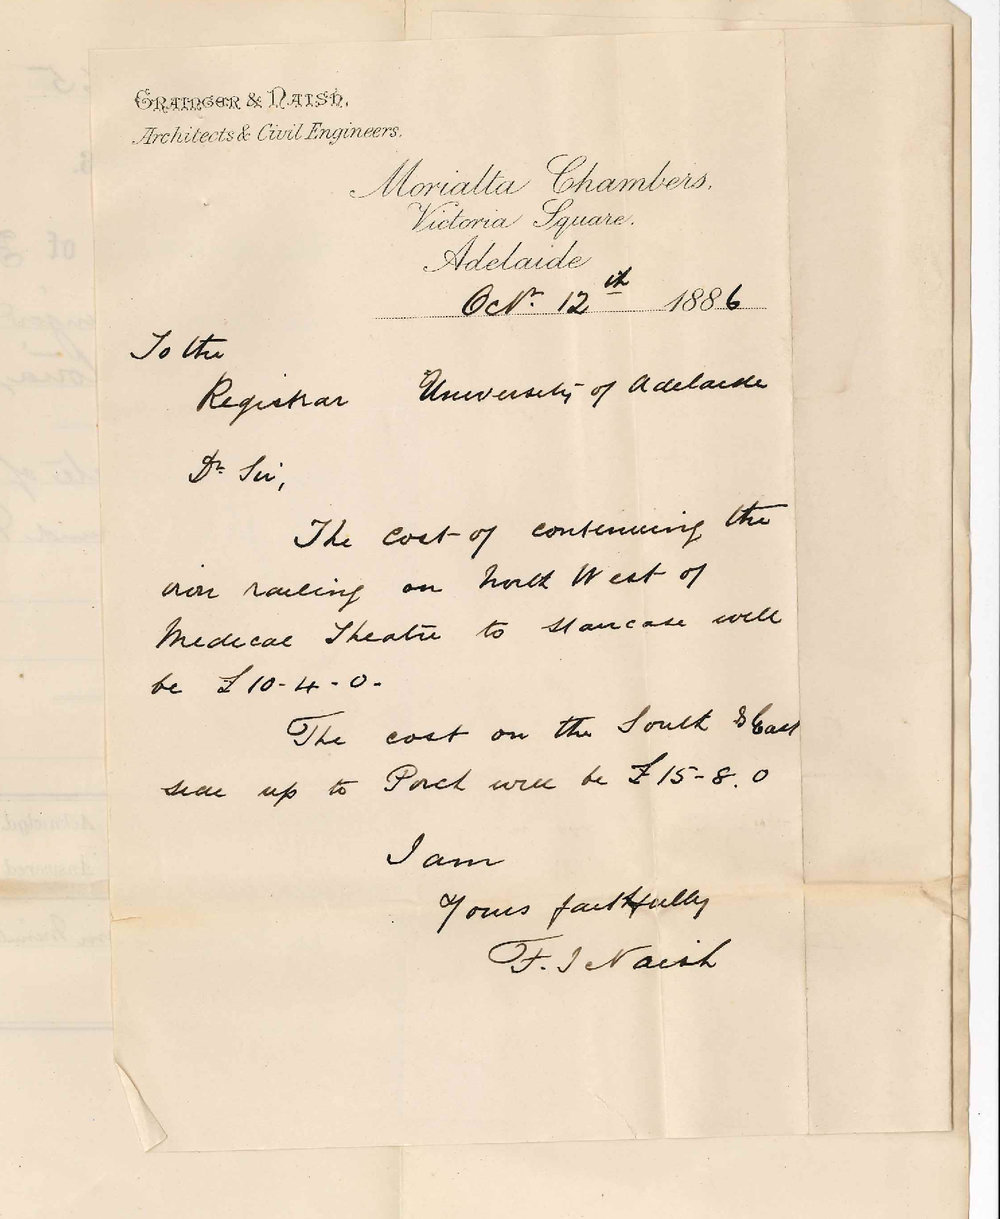 GRAINGER & NAISH.
Architects & Civil Engineers.
Morialta Chambers.
Victoria Square.
Adelaide
Octr. 12th 1886
To the
Registrar University of Adelaide
Dr Sir,
The cost of continuing the
iron railing on North West of
Medical Theatre to staircase will
be £10-4-0-
The cost on the South & East
side up to Porch will be £15-8.0
I am
Yours faithfully
F. J Naish